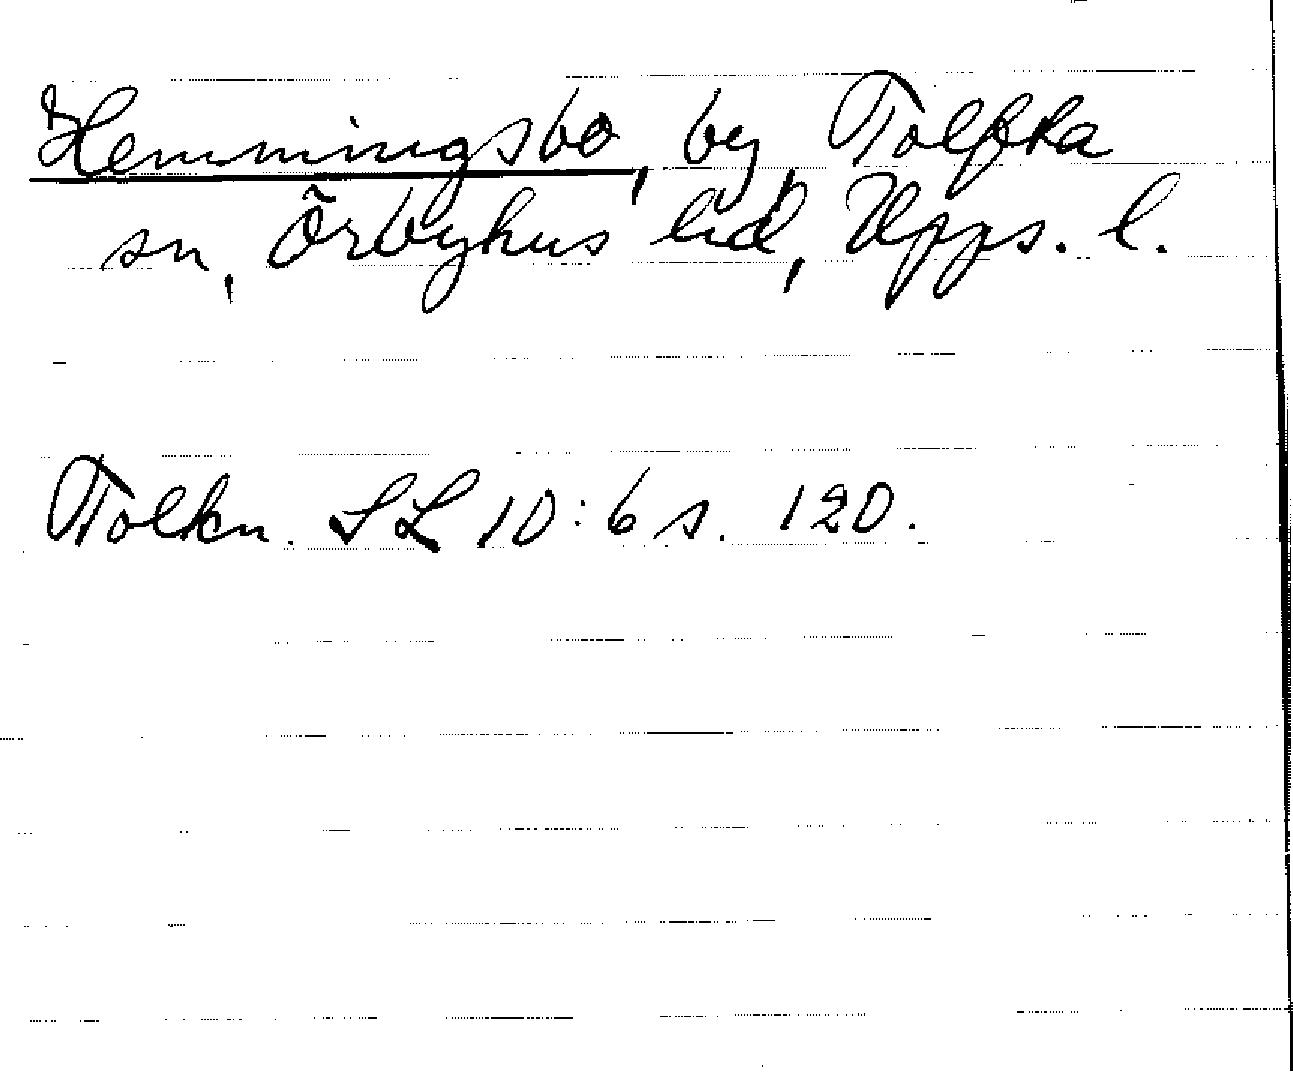 Hemmingsbo, by, Tolfta
sn, Örbyhus hd, Upps. l.
Tolkn. SL 10:6 s. 120.